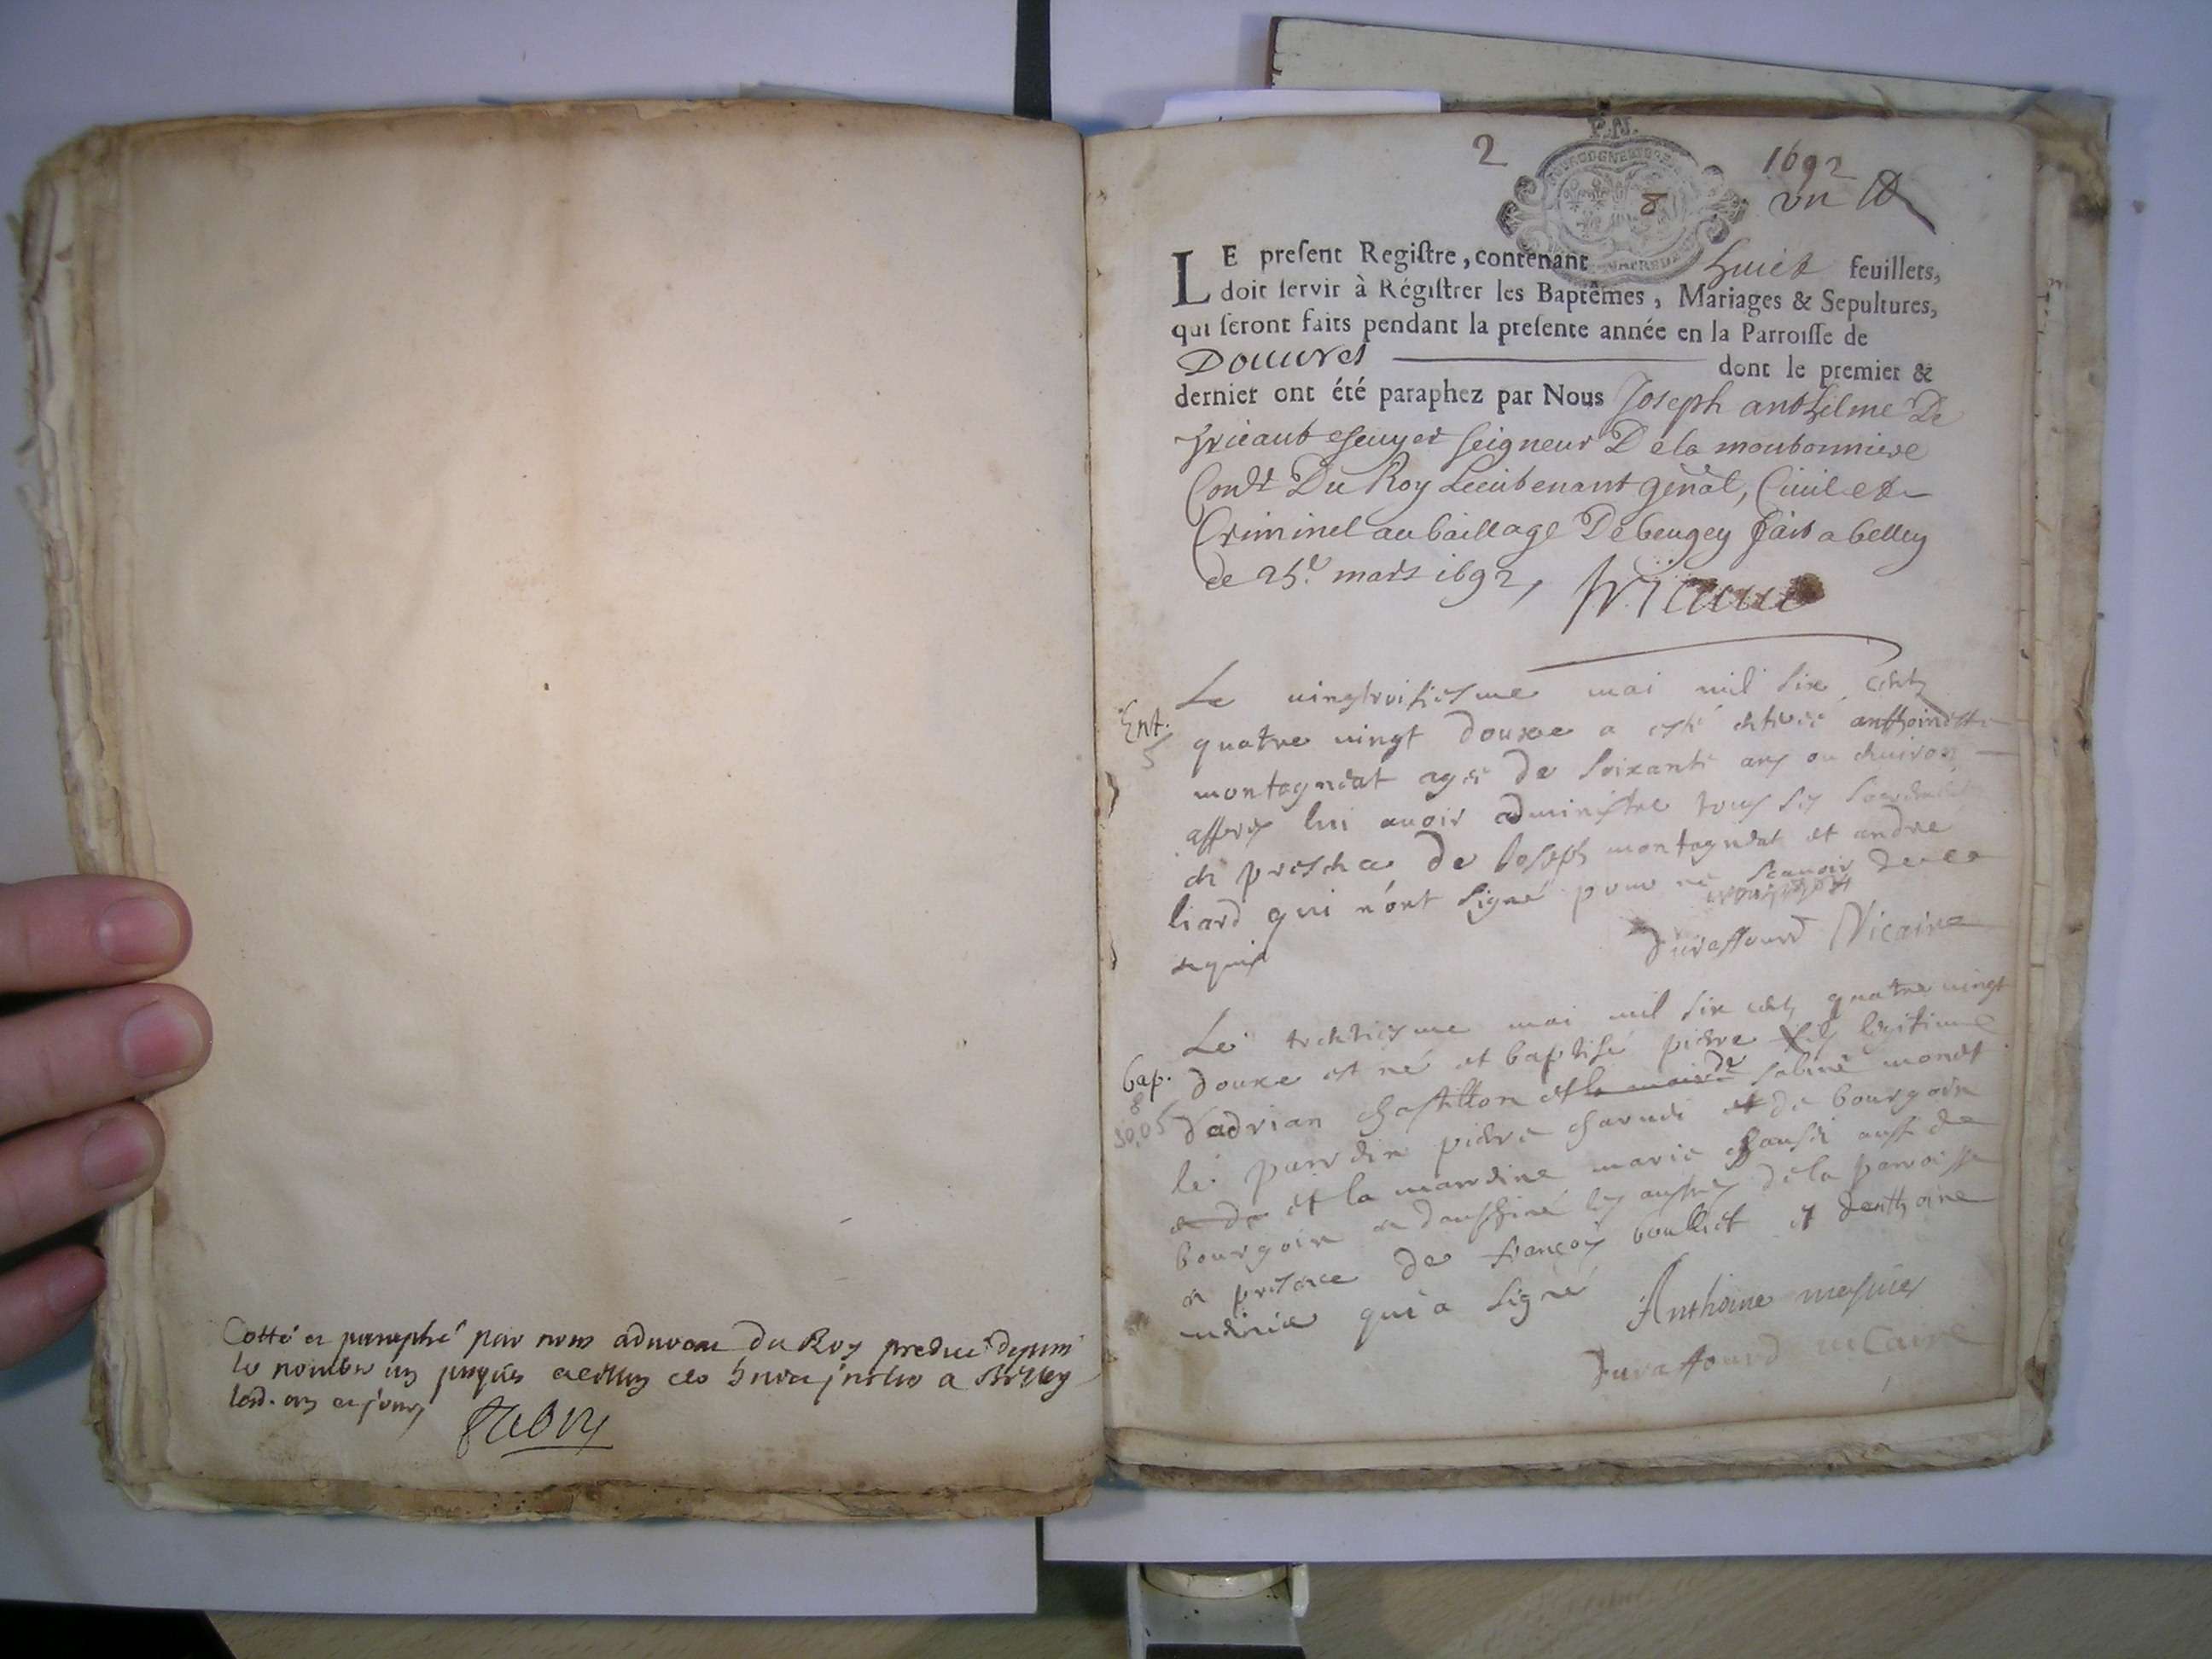 Cotté et paraphé par nous advocat Du Roy
le nombre un jusques
led. an et jour
2
P.N.
8
1692
un
LE present Registre, contenant huict feuillets,
doit servir à Régistrer les Baptêmes, Mariages & Sepultures,
qui seront faits pendant la presente année en la Parroisse de
Douvres dont le premier &
dernier ont été paraphez par Nous Joseph anthelme De
escuyer seigneur De la moubonniere
Con.er Du Roy Lieutenant gñal, Ciuil et
Criminel au baillage De beugey fait a belley
ce 25.e mars 1692,
Ent.
5
Le vingtroisiesme mai mil six cent
quatre vingt douxe a esté enterré anthoinette
montagneat agée de soixante ans ou environ
appres lui avoir administre tous ses
en presence de Joseph montagneat et andre
liard qui n'ont signé pour ne scavoir de ce
requis
Duraffourd Vicaire
bap.
8
30.05
Le trentiesme mai mil six cent quatre vingt
douxe est né et baptisé pierre fils legitime
d'adrian chastillon et de sabine monet
le parrdin pierre charvdi de bourgoin
et la marrdine marie
bourgoin en dauphiné les austres de la parroisse
en presence de françois boullict et d'anthoine
qui a signé
Anthoine mesnier
Duraffourd vicaire